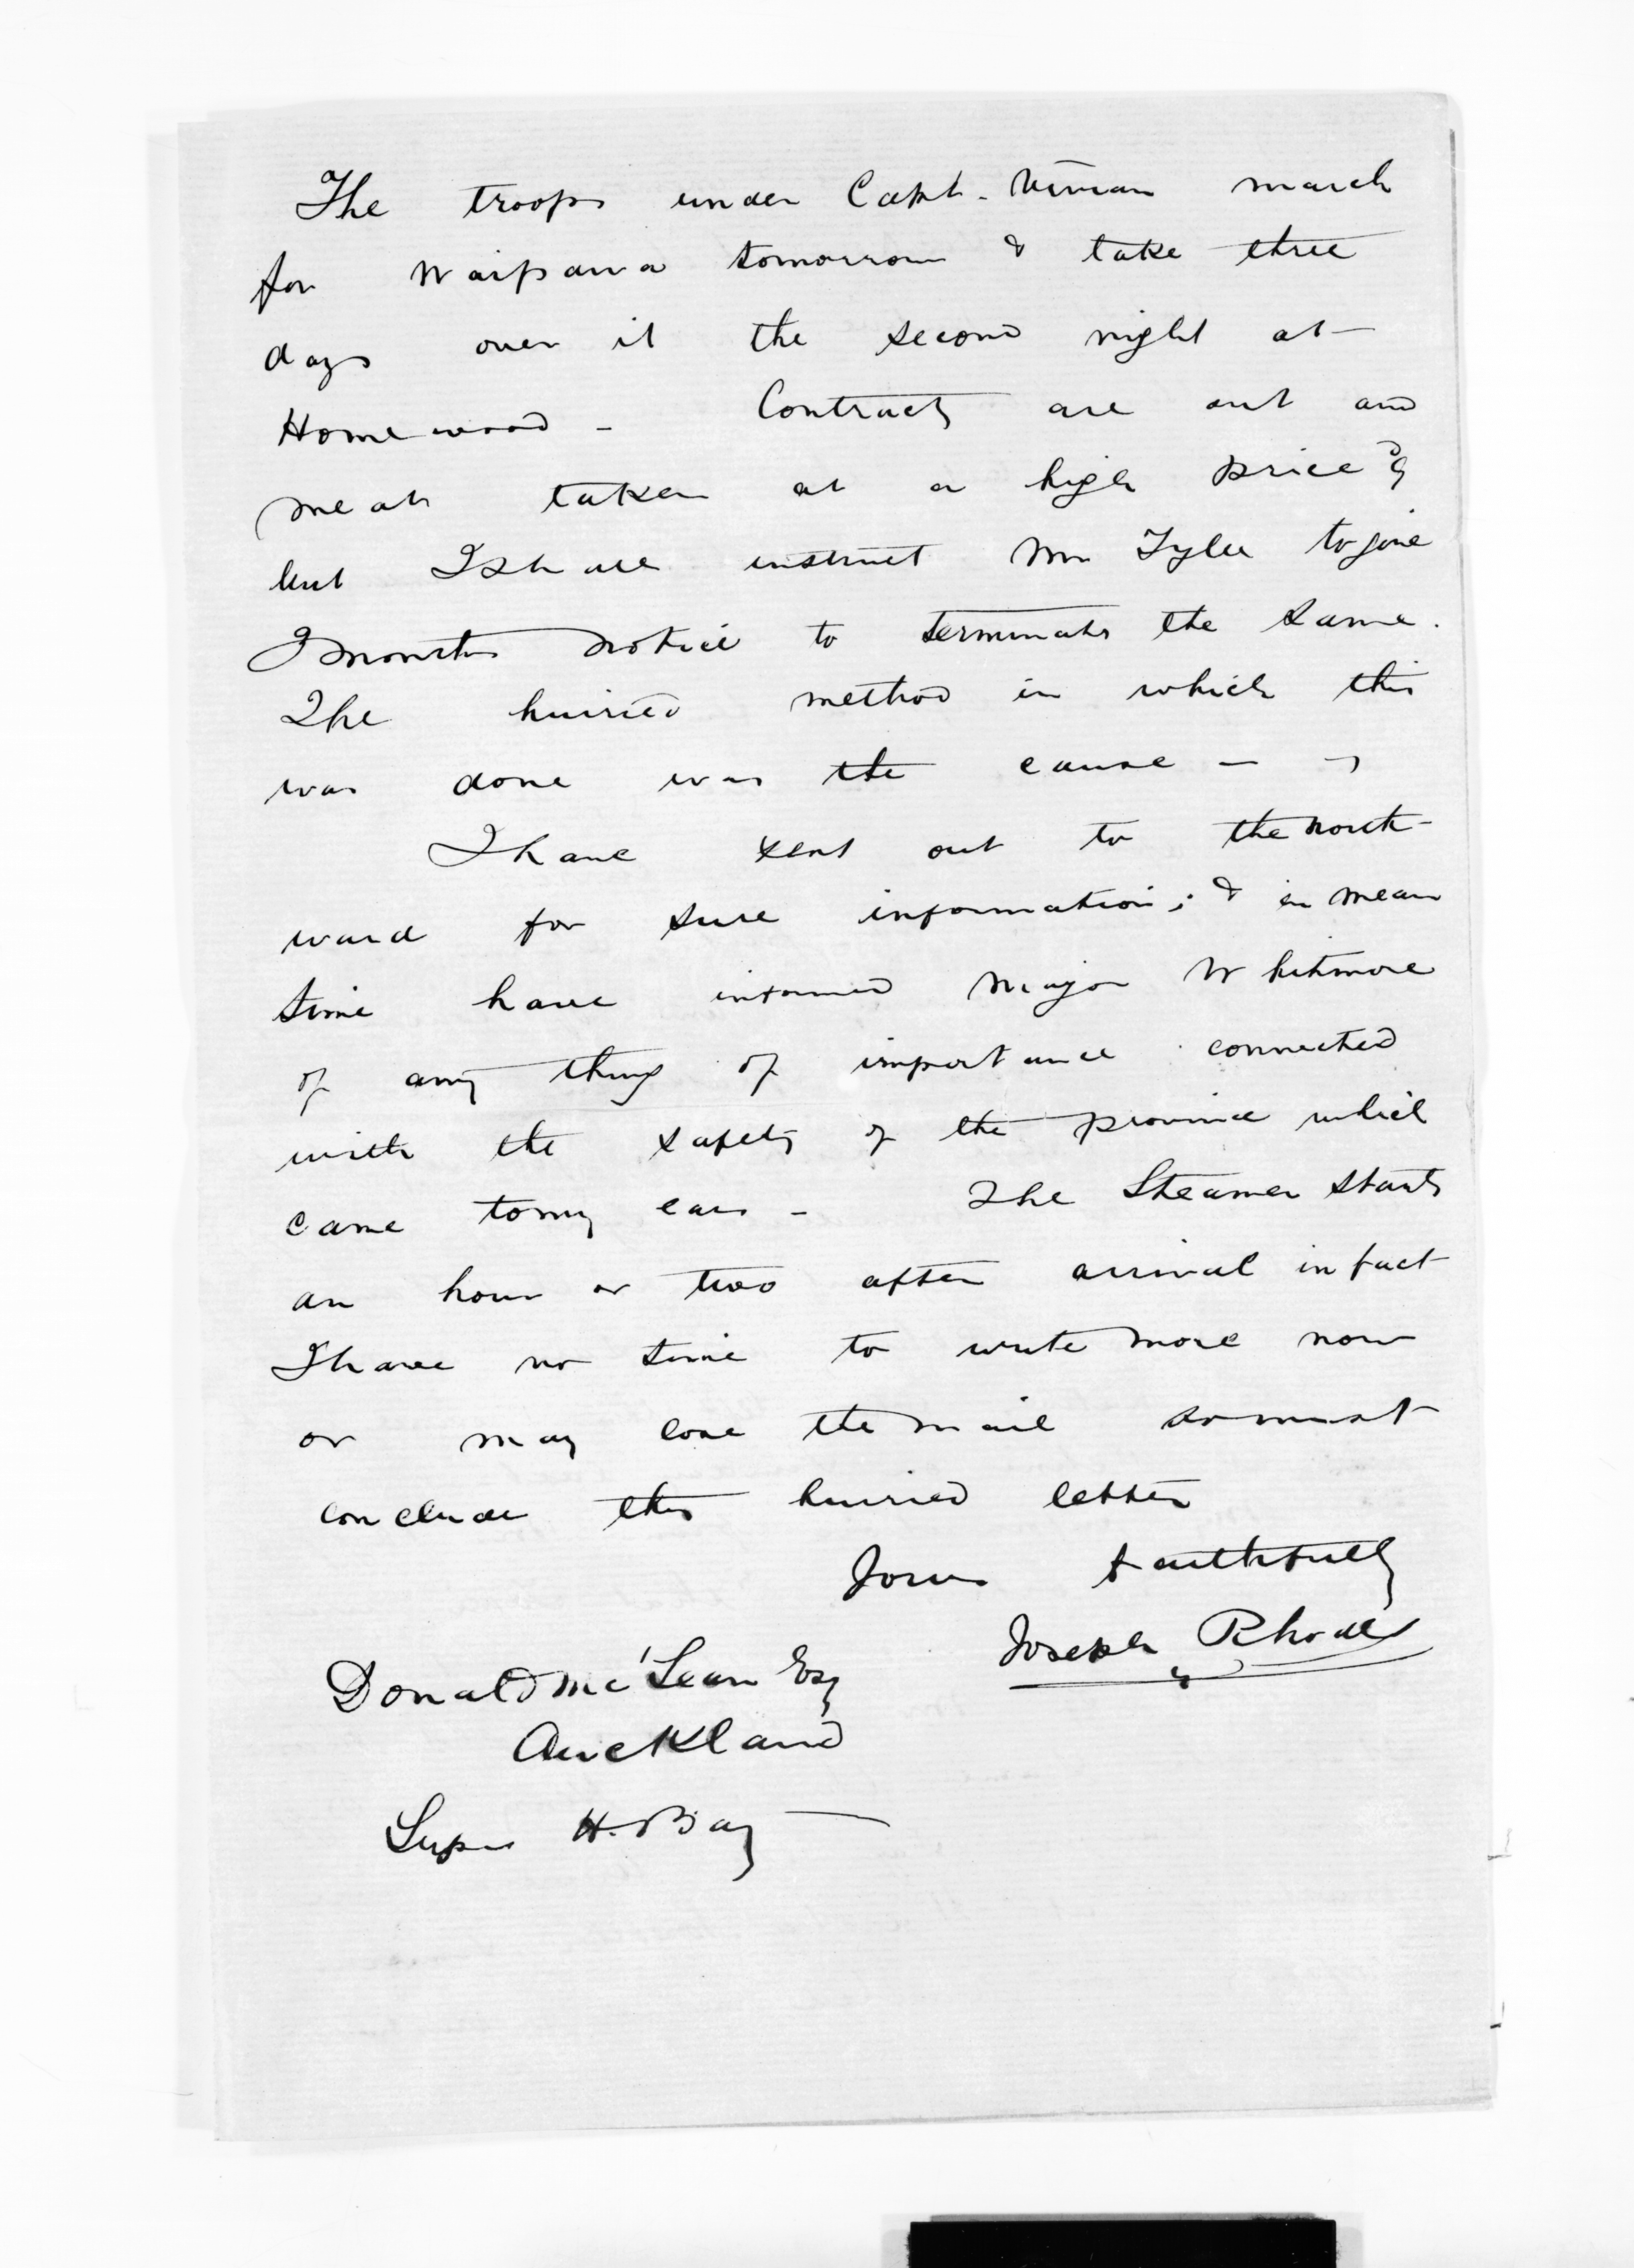 The troops under Capt. Vivian march
for Waipawa tomorrow & take three
days over it the second night at
Homewood - Contracts are out and
meat taken at a high price
but I shall instruct Mr Tylee to give
months notice to terminate the same.
The hurried method in which this
was done was the cause -
I have sent out to the north-
ward for sure information; & in mean
time have informed Major Whitmore
of any thing of importance connected
with the safety of the province which
came to my ears - The Steamer starts
an hour or two after arrival in fact
I have no time to write more now
or may lose the mail so must
conclude this hurried letter
Yours faithfully
Joseph Rhodes
Donald McLean Esq
Auckland
Super H. Bay